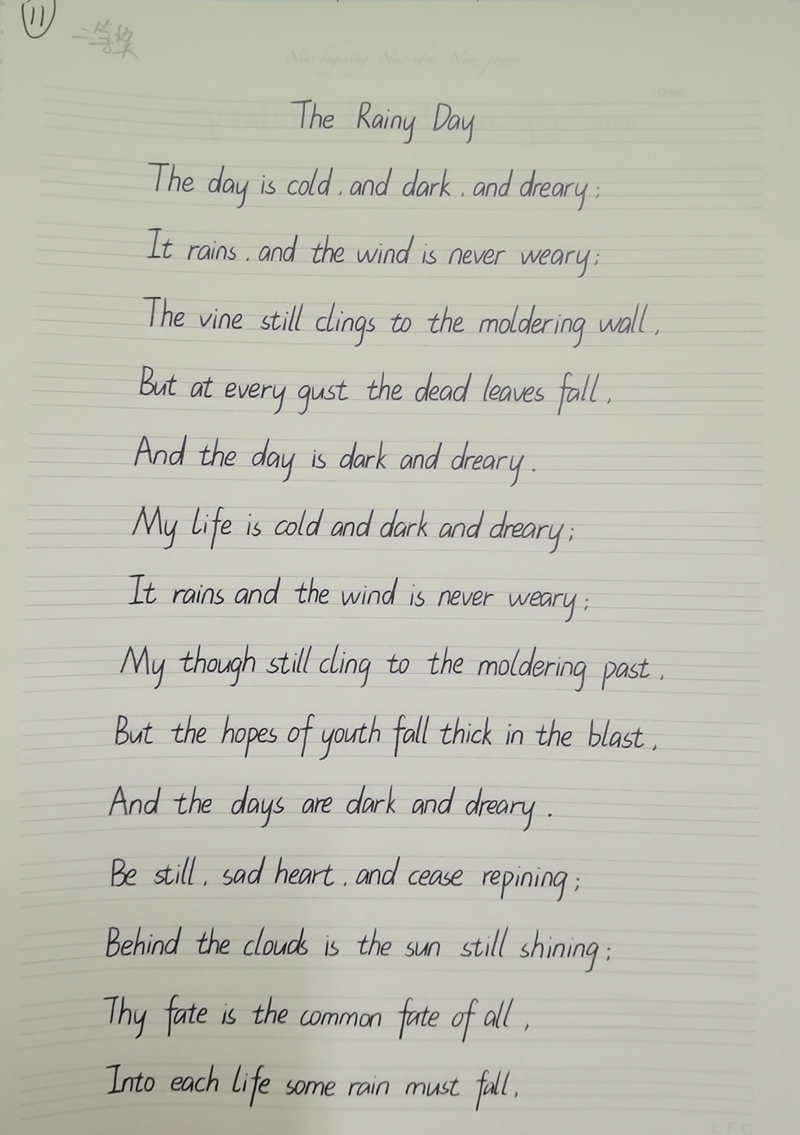 11
二等奖
The Rainy Day
The day is cold, and dark, and dreary;
It rains, and the wind is never weary;
The vine still clings to the moldering wall,
But at every gust the dead leaves fall,
And the day is dark and dreary.
My life is cold and dark and dreary;
It rains and the wind is never weary;
My though still cling to the moldering past,
But the hopes of youth fall thick in the blast,
And the days are dark and dreary.
Be still, sad heart, and cease repining;
Behind the clouds is the sun still shining;
Thy fate is the common fate of all,
Into each life some rain must fall,